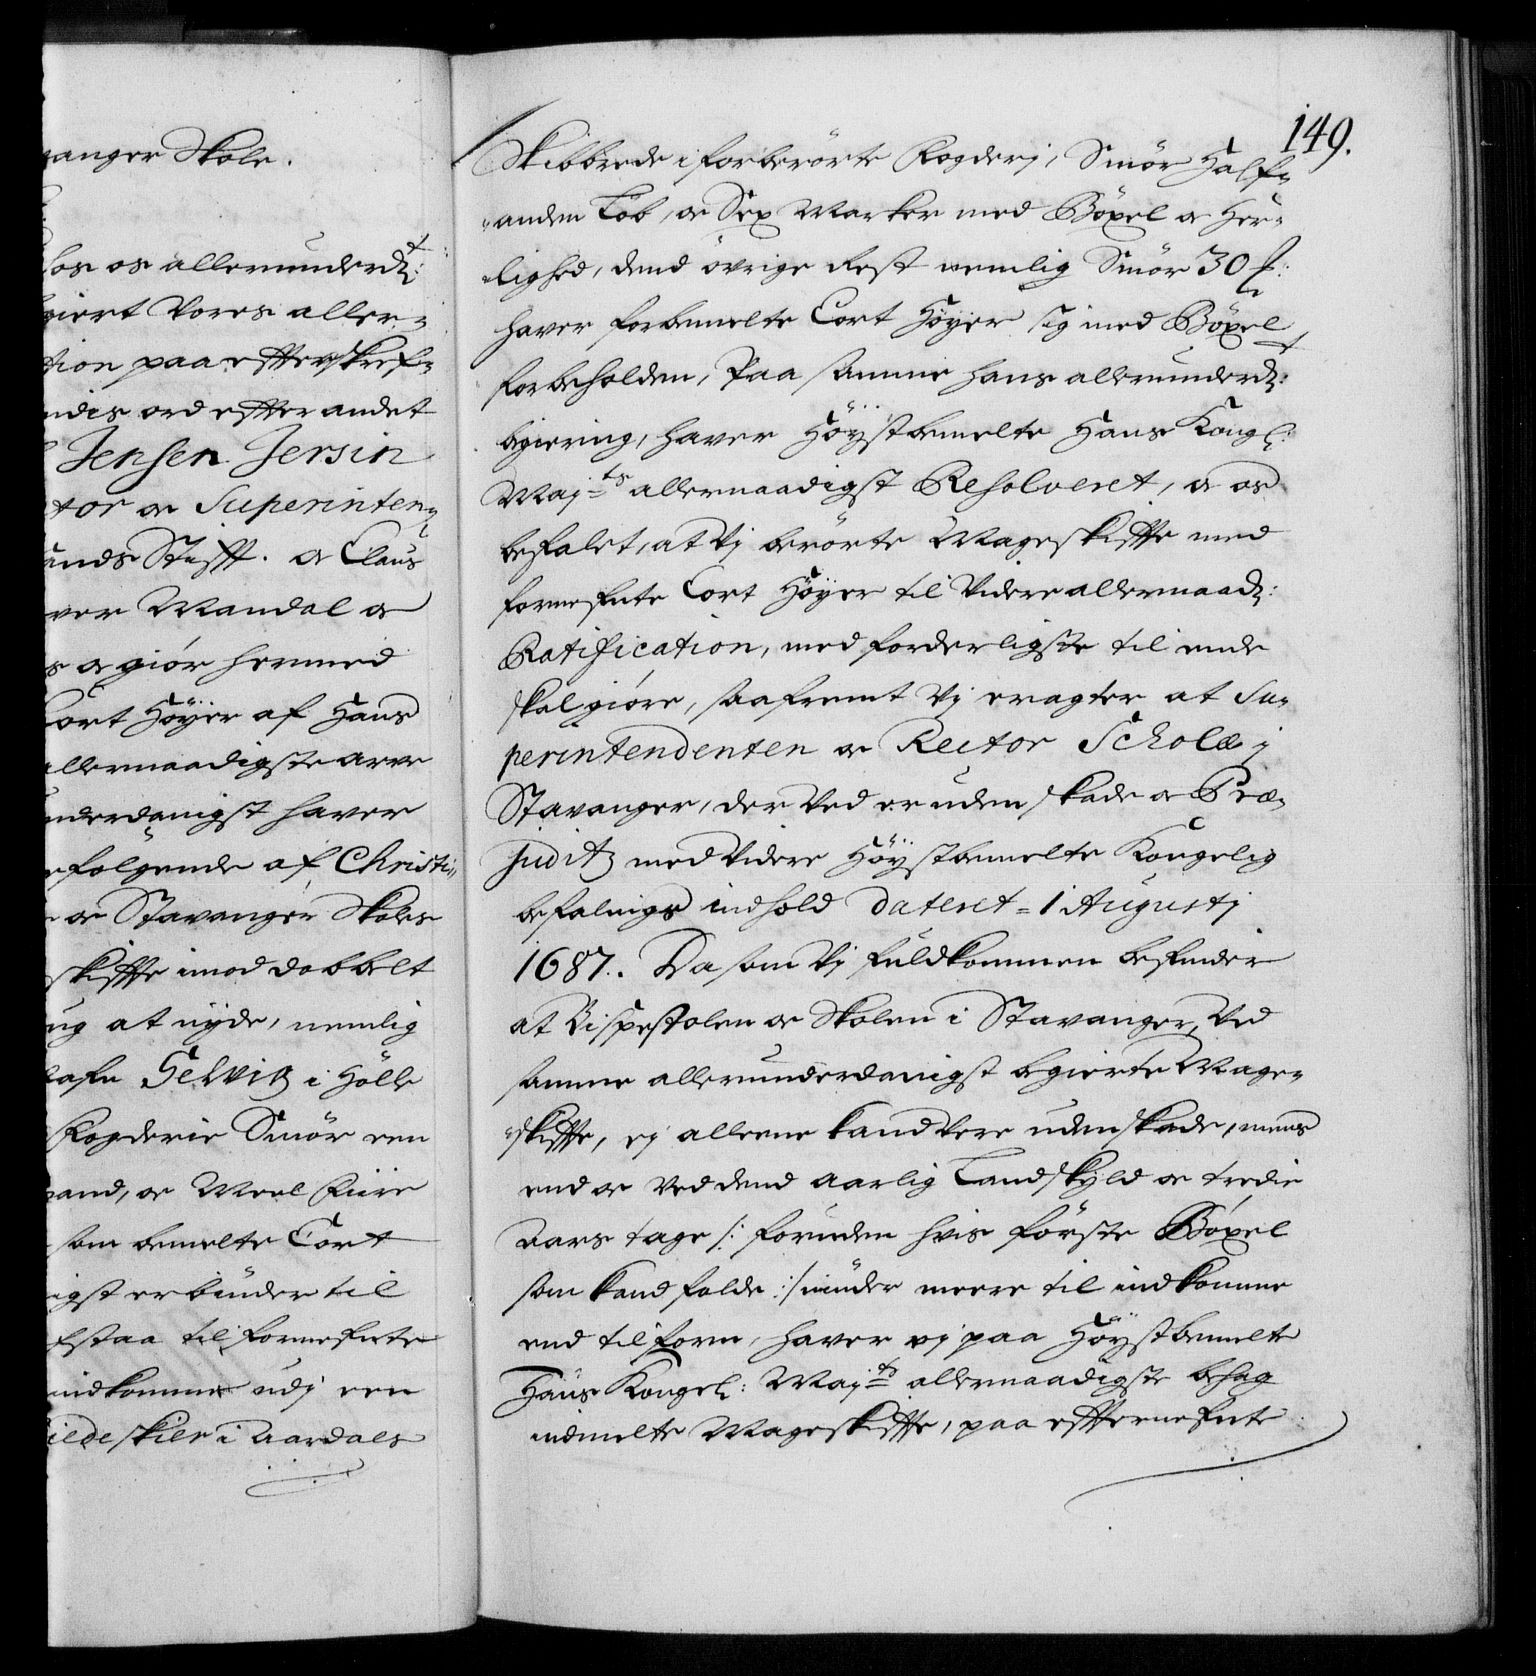 anger Skole.
hos os allerunderd:
giert Vores aller-
tion paa effterskref-
ndis ord effter andet
Jensen Jersin
tor oc Superinten-
ands Stifft. oc Claus
ver Mandal oc
s oc giör hermed
Cort Höyer af Hans
allernaadigste arve
underdanigst haver
efölgende af Christi-
oc Stavanger Skoles
skiffte imod dobbelt
ug at nyde, nemlig
Selvig i Hölle
Fogderie Smör een
and, oc Meel fiire
som bemelte Cort
igst erbiuder til
fstaa til fornefnte
indkomme udj een
i Aardals
149.
Skibbrede i forberörte Fogderj, Smör Half-
anden Löb, oc Sex Marker med Böxel oc Her-
lighed, dend övrige Rest nemlig Smör 30
haver forbemelte Cort Höyer sig med Böxel
forbeholden, Paa samme hans allerunderd:
begiering, haver Höystbemelte Hans Kongl:
Maj:ts allernaadigst Resolveret, oc os
befalet, at Vj berörte Mageskiffte med
fornefnte Cort Höyer til Videre allernaad:
Ratification, med forderligste til ende
skal giöre, saafremt Vj eragter at Su-
perintendenten oc Rector Scholæ j
Stavanger, der Ved er uden skade oc Præ-
juditz med Videre Höystbemelte Kongelig
befalnigs indhold dateret 1 Augustj
1687. Da som Vj fuldkommen befinder
at Bispestolen oc Skolen i Stavanger, Ved
samme allerunderdanigst begierte Mage-
skiffte, ej alleene kand Vere uden skade, mens
end oc Ved dend aarlig Landskyld oc tredie
Aars tage /: foruden hvis förste Böxel
som kand falde :/ niuder meere til indkomme
end tilforn, haver vj paa Höystbemelte
Hans Kongel: Maj:ts allernaadigste behag
indmelte Mageskiffte, paa effternefnte